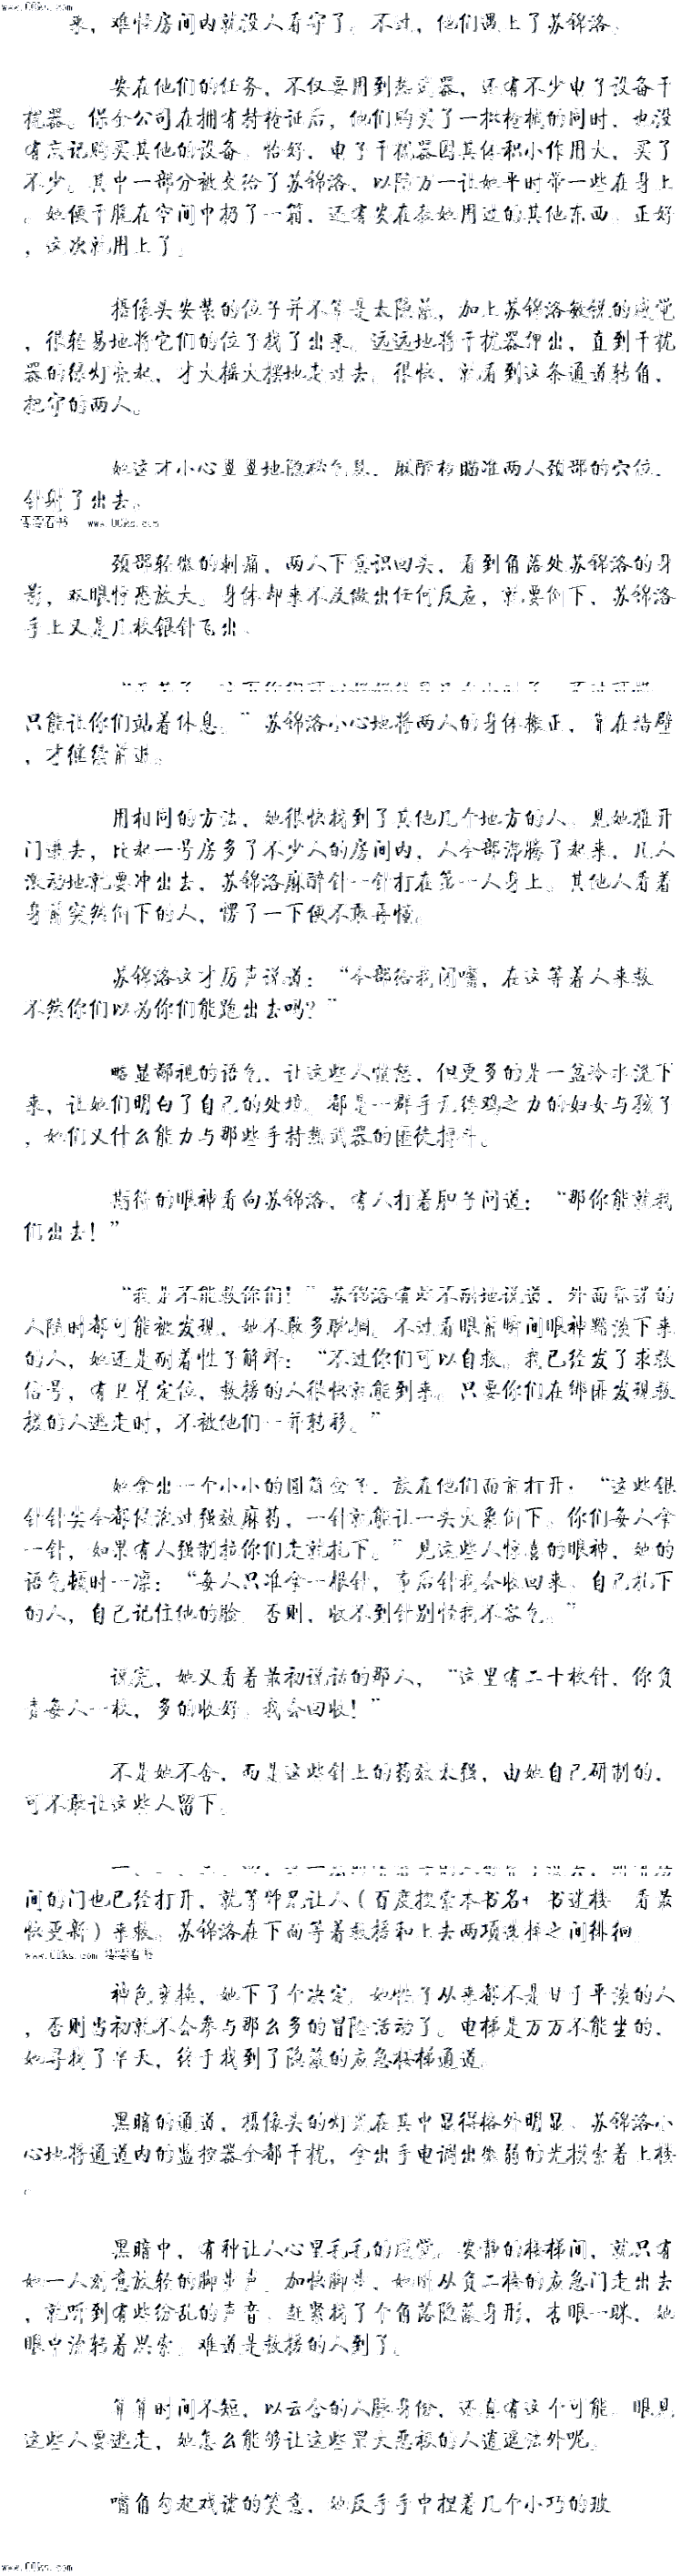 www.00ks.com
来，难怪房间内就没人看守了。不过，他们遇上了苏锦洛。
安在他们的任务，不仅要用到热武器，还有不少电子设备干
扰器。保全公司在拥有持枪证后，他们购买了一批枪械的同时，也没
有忘记购买其他的设备。恰好，电子干扰器因其体积小作用大，买了
不少。其中一部分被交给了苏锦洛，以防万一让她平时带一些在身上
。她便干脆在空间中扔了一箱，还有安在教她用过的其他东西。正好
，这次就用上了。
摄像头安装的位子并不算是太隐蔽，加上苏锦洛敏锐的感觉
，很轻易地将它们的位子找了出来。远远地将干扰器弹出，直到干扰
器的绿灯亮起，才大摇大摆地走过去。很快，就看到这条通道转角，
把守的两人。
她这才小心翼翼地隐秘气息，麻醉枪瞄准两人颈部的穴位，
针射了出去。
零零看书 www.00ks.com
颈部轻微的刺痛，两人下意识回头，看到角落处苏锦洛的身
影，双眼惊恐放大。身体却来不及做出任何反应，就要倒下，苏锦洛
手上又是几枚银针飞出。
只能让你们站着休息。”苏锦洛小心地将两人的身体搬正，靠在墙壁
，才继续前进。
用相同的方法，她很快找到了其他几个地方的人。见她推开
门进去，比起一号房多了不少人的房间内，人全部沸腾了起来，几人
激动地就要冲出去，苏锦洛麻醉针一针打在第一人身上。其他人看着
身前突然倒下的人，愣了一下便不敢再懂。
苏锦洛这才厉声说道：“全部给我闭嘴，在这等着人来救
不然你们以为你们能跑出去吗？”
略显鄙视的语气，让这些人愤怒，但更多的是一盆冷水浇下
来，让她们明白了自己的处境。都是一群手无缚鸡之力的妇女与孩子
，她们又什么能力与那些手持热武器的匪徒搏斗。
期待的眼神看向苏锦洛，有人打着胆子问道：“那你能就我
们出去！”
“我是不能救你们！”苏锦洛有些不耐地说道，外面靠着的
人随时都可能被发现，她不敢多耽搁。不过看眼前瞬间眼神黯淡下来
的人，她还是耐着性子解释：“不过你们可以自救。我已经发了求救
信号，有卫星定位，救援的人很快就能到来。只要你们在绑匪发现救
援的人逃走时，不被他们一并转移。”
她拿出一个小小的圆筒盒子，放在他们面前打开：“这些银
针针尖全都侵泡过强效麻药，一针就能让一头大象倒下。你们每人拿
一针，如果有人强制拉你们走就扎下。”见这些人惊喜的眼神，她的
语气顿时一凛：“每人只准拿一根针，事后针我会收回来。自己扎下
的人，自己记住他的脸。否则，收不到针别怪我不客气。”
说完，她又看着最初说话的那人，“这里有二十枚针，你负
责每人一枚，多的收好，我会回收！”
不是她不舍，而是这些针上的药效太强，由她自己研制的，
可不敢让这些人留下。
间的门也已经打开，就等师兄让人（百度搜索本书名+ 书迷楼 看最
快更新）来救。苏锦洛在下面等着救援和上去两项选择之间徘徊。
www.00ks.com 零零看书
神色变换，她下了个决定。她快了从来都不是甘于平淡的人
，否则当初就不会参与那么多的冒险活动了。电梯是万万不能坐的，
她寻找了半天，终于找到了隐蔽的应急楼梯通道。
黑暗的通道，摄像头的灯光在其中显得格外明显。苏锦洛小
心地将通道内的监控器全都干扰，拿出手电调出微弱的光摸索着上楼
。
黑暗中，有种让人心里毛毛的感觉。安静的楼梯间，就只有
她一人刻意放轻的脚步声。加快脚步，她刚从负二楼的应急门走出去
，就听到有些纷乱的声音。赶紧找了个角落隐蔽身形，杏眼一眯，她
眼中流转着思索。难道是救援的人到了。
算算时间不短，以云舍的人脉身份，还真有这个可能。眼见
这些人要逃走，她怎么能够让这些罪大恶极的人逍遥法外呢。
嘴角勾起戏谑的笑意，她反手手中捏着几个小巧的玻
www.00ks.com